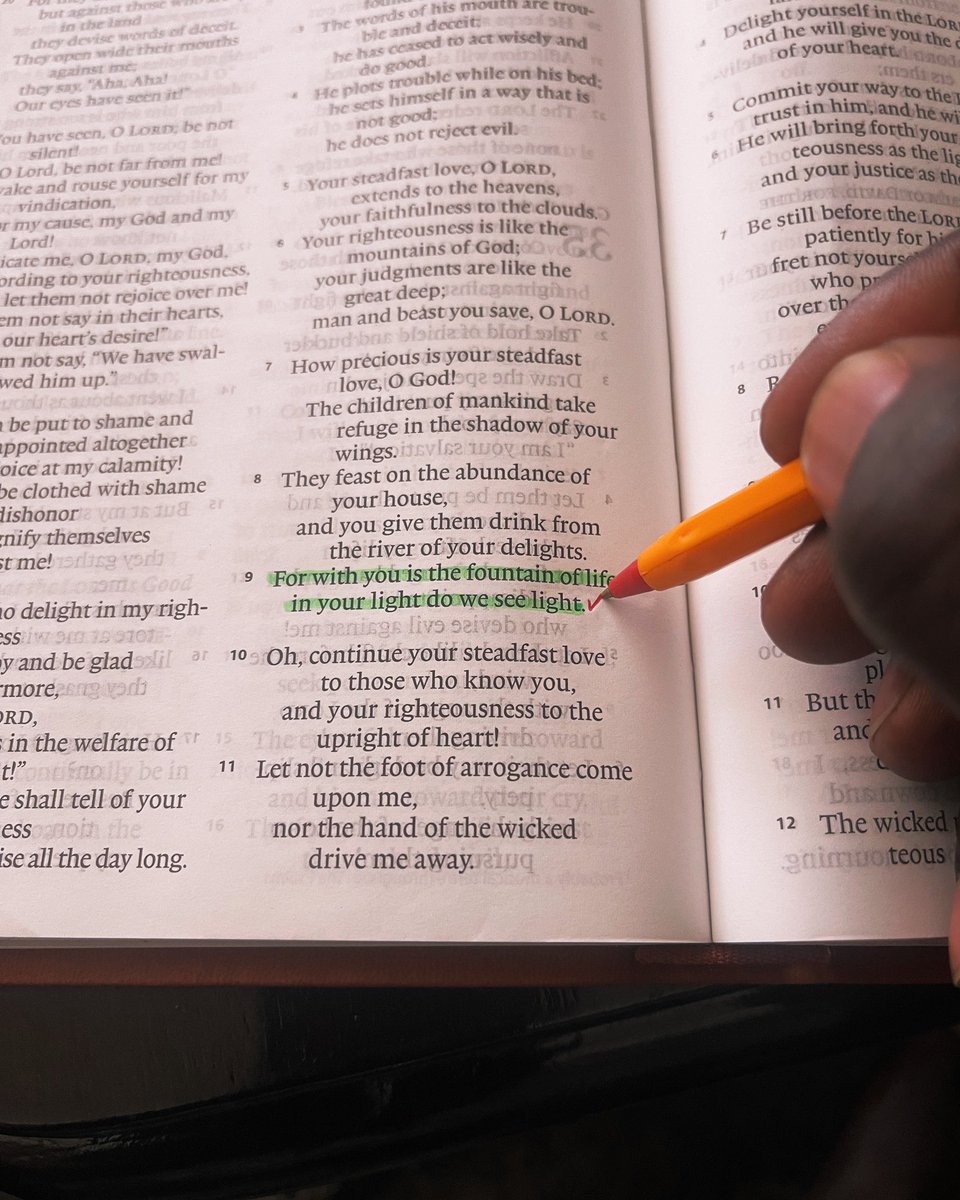 but against those who
in the land
they devise words of deceit.
They open wide their mouths
against me;
they say, "Aha, Aha!
Our eyes have seen it!"
You have seen, O LORD; be not
silent!
O Lord, be not far from me!
and rouse yourself for my
vindication,
my cause, my God and my
Lord!
me, O LORD, my God,
to your righteousness,
let them not rejoice over me!
not say in their hearts,
our heart's desire!"
not say, "We have swal-
him up."
be put to shame and
altogether
at my calamity!
be clothed with shame
dishonor
themselves
me!
delight in my righ-
and be glad
in the welfare of
shall tell of your
all the day long.
3 The words of his mouth are trou-
ble and deceit;
he has ceased to act wisely and
do good.
4 He plots trouble while on his bed;
he sets himself in a way that is
not good;
he does not reject evil.
5 Your steadfast love, O LORD,
extends to the heavens,
your faithfulness to the clouds.
6 Your righteousness is like the
mountains of God;
your judgments are like the
great deep;
man and beast you save, O LORD.
7 How precious is your steadfast
love, O God!
The children of mankind take
refuge in the shadow of your
wings.
8 They feast on the abundance of
your house,
and you give them drink from
the river of your delights.
9 For with you is the fountain of life;
in your light do we see light.
10 Oh, continue your steadfast love
to those who know you,
and your righteousness to the
upright of heart!
11 Let not the foot of arrogance come
upon me,
nor the hand of the wicked
drive me away.
4 Delight yourself in the LORD
and he will give you the
of your heart.
5 Commit your way to the
trust in him, and he
6 He will bring forth your
teousness as the
and your justice as
7 Be still before the LORD
patiently for
fret not
who
over
8
11 But
and
12 The wicked
teous